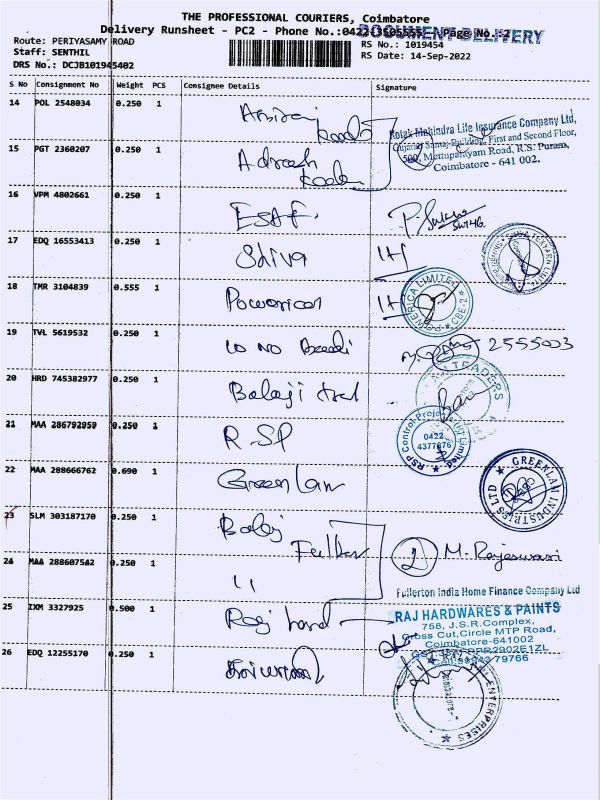 THE PROFESSIONAL COURIERS, Coimbatore
Delivery Runsheet - PC2 - Phone No.:0422 3505555 - Page No.:2
DOCUMENT DELIVERY
Route: PERIYASAMY ROAD
Staff: SENTHIL
DRS No.: DCJB101945402
RS No.: 1019454
RS Date: 14-Sep-2022
S No Consignment No Weight PCS Consignee Details Signature
14 POL 2548034 0.250 1
Kotak Mahindra Life Insurance Company Ltd,
Gujarat Samaj Building, First and Second Floor,
Mettupalayam Road, R.S. Puram,
Coimbatore - 641 002.
15 PGT 2360207 0.250 1
16 VPM 4802661 0.250 1 ESAF
17 EDQ 16553413 0.250 1 Shiva
18 TMR 3104839 0.555 1 Powerica
POWERICA LIMITED CBE-2
19 TVL 5619532 0.250 1
2555003
20 HRD 745382977 0.250 1 Balaji
TRADERS
21 MAA 286792959 0.250 1 RSP
RSP Control Projects (P) Limited
0422
4377676
22 MAA 288666762 0.690 1 Greenlam
GREENLAM INDUSTRIES LTD
23 SLM 303187170 0.250 1
2 M. Rajeswari
24 MAA 288607542 0.250 1 11
Fullerton India Home Finance Company Ltd
25 IXM 3327925 0.500 1 Raj hard
RAJ HARDWARES & PAINTS
758, J.S.R.Complex,
Cross Cut,Circle MTP Road,
Coimbatore-641002
26 EDQ 12255170 0.250 1
ENTERPRISES